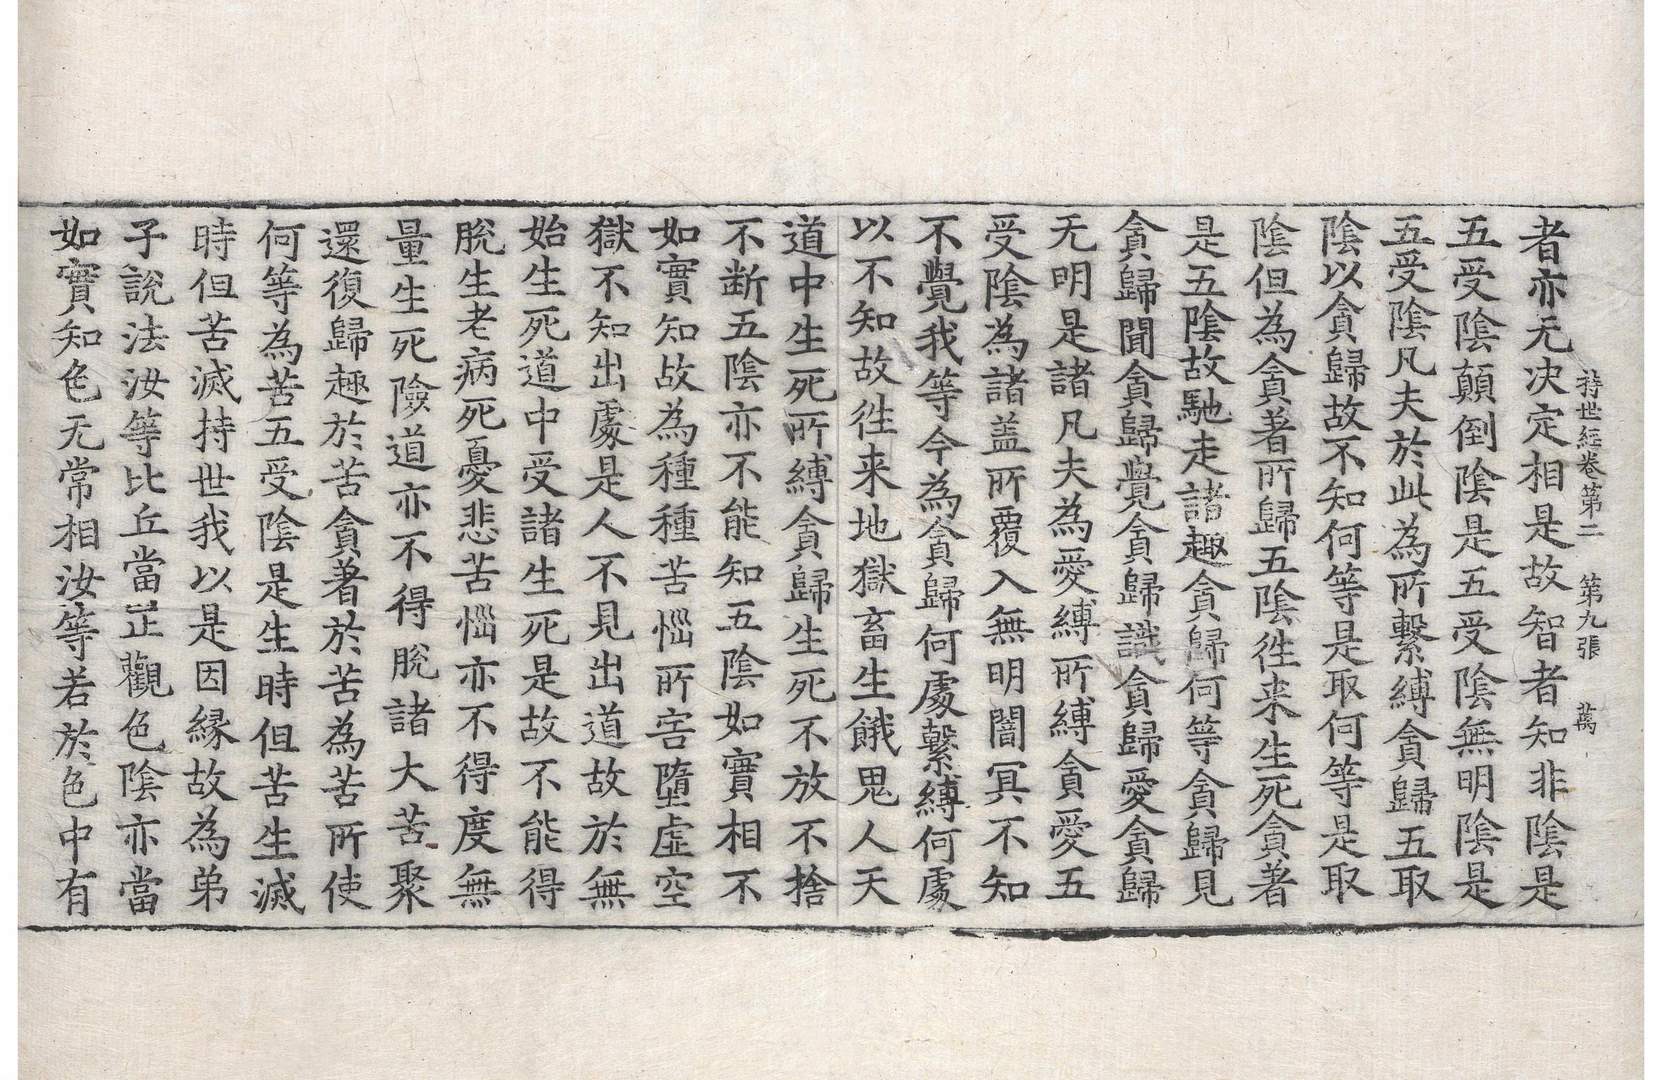 持世經卷第二 第九張 萬
者亦无决定相是故智者知非陰是
五受陰顛倒陰是五受陰無明陰是
五受陰凡夫於此為所繫縛貪歸五取
陰以貪歸故不知何等是取何等是取
陰但為貪著所歸五陰徃来生死貪著
是五陰故馳走諸趣貪歸何等貪歸見
貪歸聞貪歸覺貪歸識貪歸愛貪歸
无明是諸凡夫為愛縛所縛貪愛五
受陰為諸盖所覆入無明闇冥不知
不覺我等今為貪歸何處繫縛何處
以不知故徃来地獄畜生餓鬼人天
道中生死所縛貪歸生死不放不捨
不断五陰亦不能知五陰如實相不
如實知故為種種苦惱所害墮虛空
獄不知出處是人不見出道故於無
始生死道中受諸生死是故不能得
脫生老病死憂悲苦惱亦不得度無
量生死險道亦不得脫諸大苦聚
還復歸趣於苦貪著於苦為苦所使
何等為苦五受陰是生時但苦生滅
時但苦滅持世我以是因縁故為弟
子說法汝等比丘當正觀色陰亦當
如實知色无常相汝等若於色中有